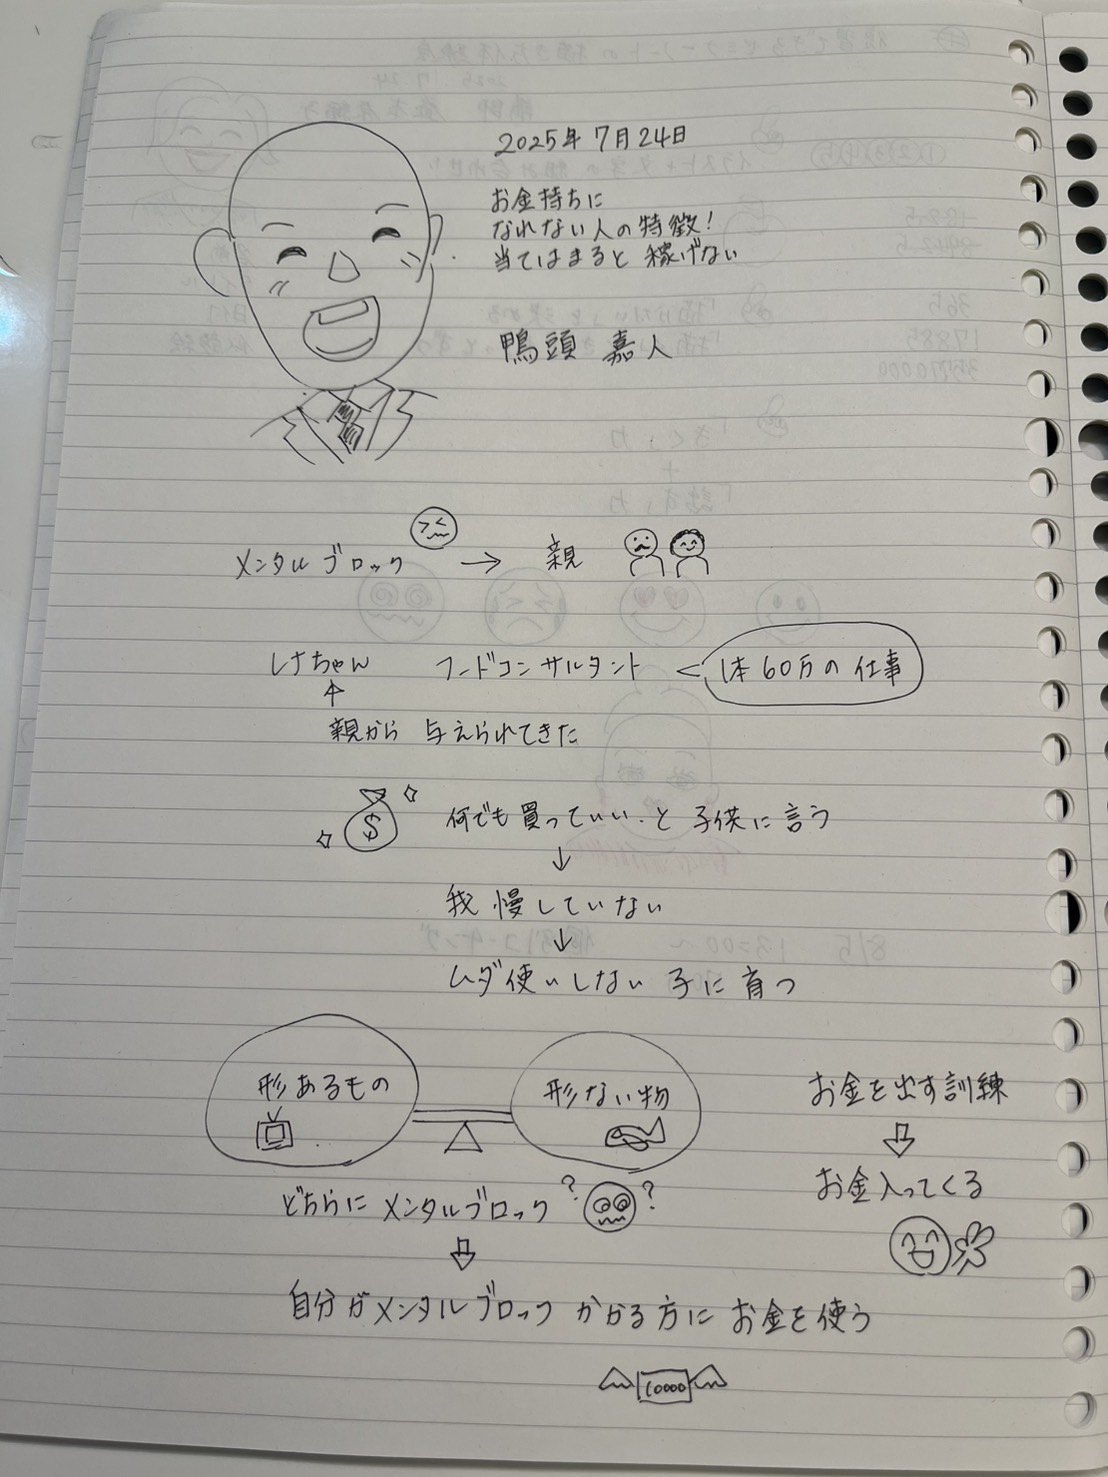 2025年7月24日
お金持ちに
なれない人の特徴!
当てはまると稼げない
鴨頭 嘉人
メンタルブロック → 親
レナちゃん フードコンサルタント < 1本60万の仕事
↑
親から与えられてきた
$ 何でも買っていい、と子供に言う
↓
我慢していない
↓
ムダ使いしない子に育つ
形あるもの 形ない物
どちらにメンタルブロック??
⇩
自分がメンタルブロックかかる方にお金を使う
10000
お金を出す訓練
⇩
お金入ってくる